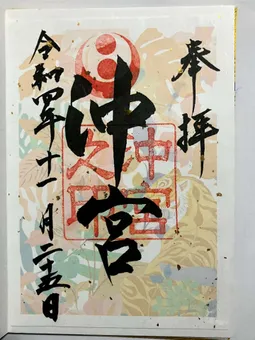 奉拝
沖宮
沖宮之印
令和四年十一月二十五日